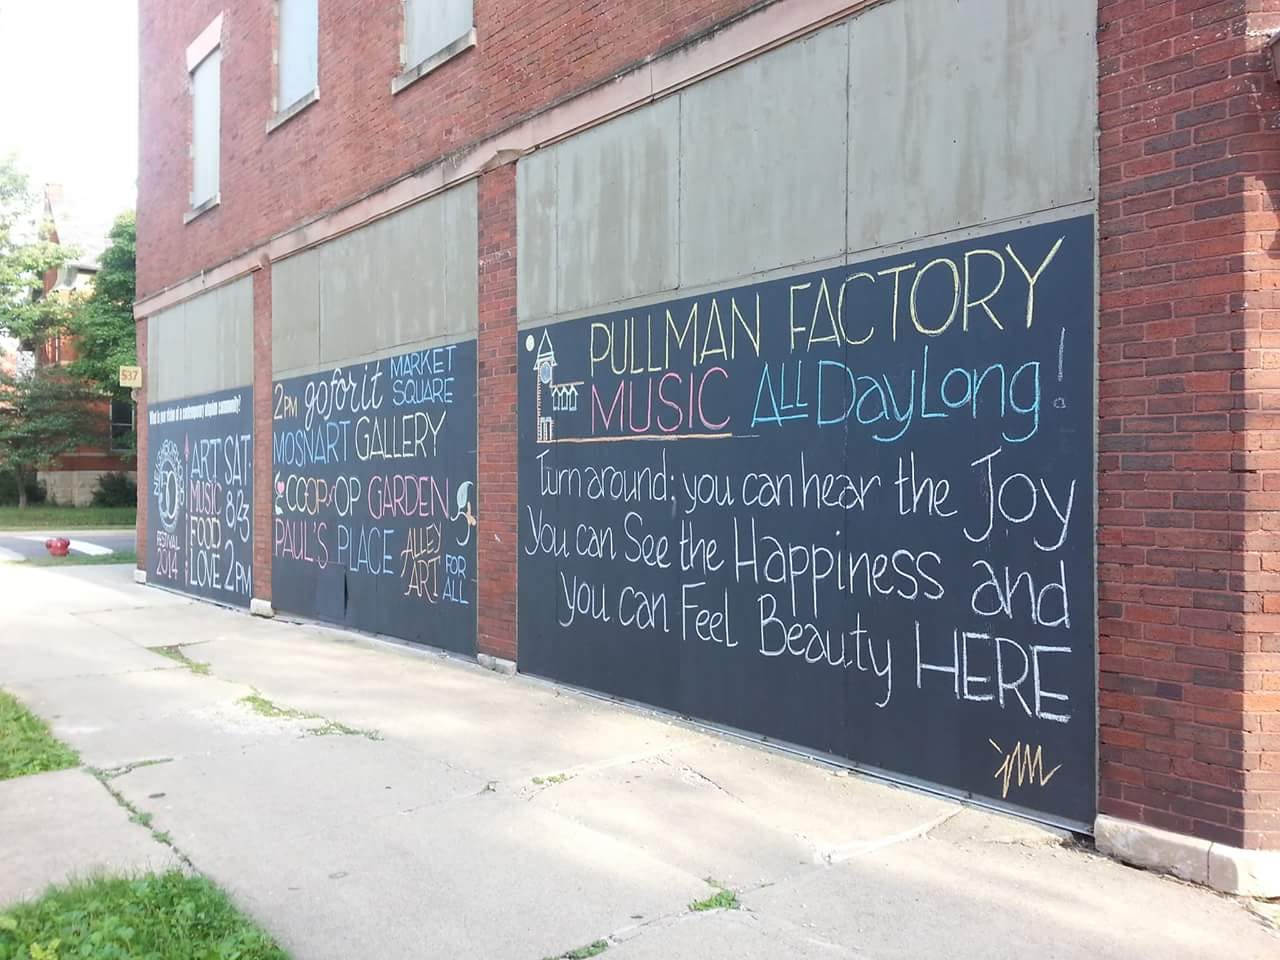 537
What is your vision of a contemporary utopian community?
ART SAT.
MUSIC 8/23
FOOD
LOVE 2PM
FESTIVAL
2014
2PM goforit MARKET
SQUARE
MOSNART GALLERY
COOP OP GARDEN
PAUL'S PLACE ALLEY
ART FOR
ALL
PULLMAN FACTORY
MUSIC ALL Day Long!
Turn around; you can hear the Joy
You can See the Happiness and
you can Feel Beauty HERE